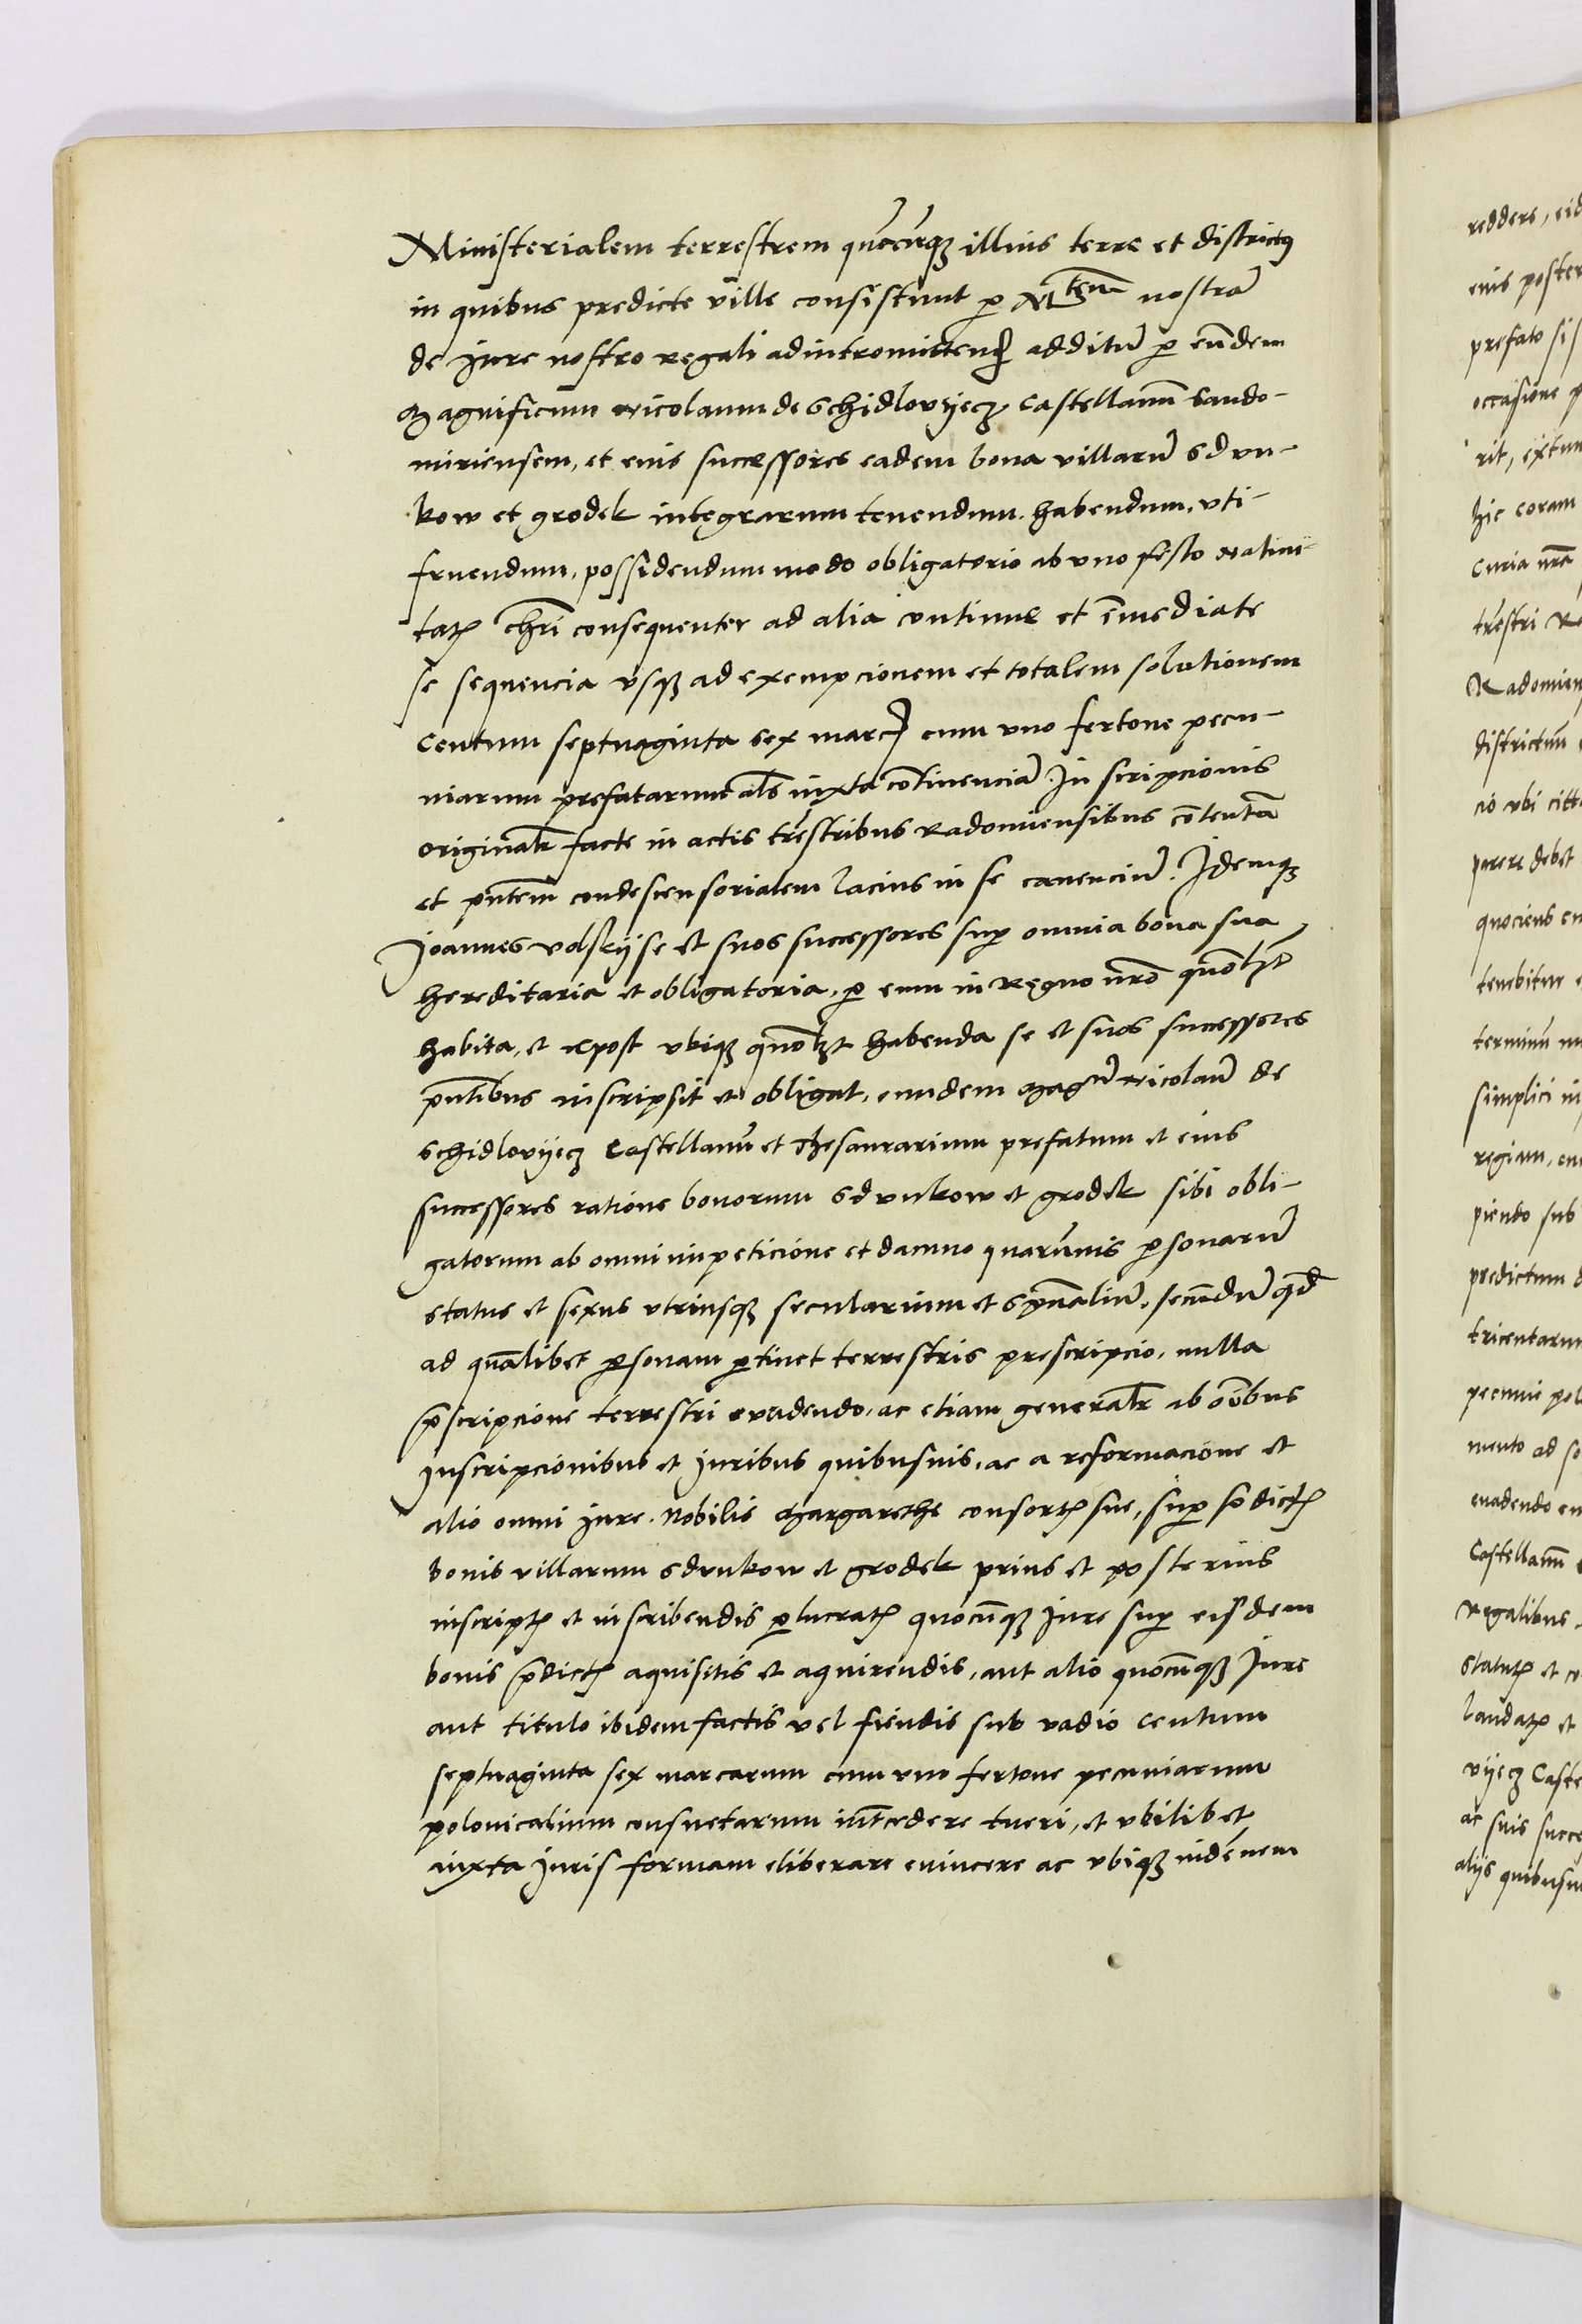 Ministerialem terrestrem quēcūqꝫ illius terre et districtꝯ
in quibus predicte ville consistunt ꝑ Mtēm nostrā
de Jure nostro regali ad intromittenđ additū ꝑ eūdem
Magnificum Nicolaum de Schidlovyecz Castellanū Sando-
miriensem, et eius successores eadem bona villarū Sdvn-
kow et grodek integrarum tenendum. habendum, vti-
fruendum, possidendum modo obligatorio ab vno festo Natiui-
tatꝭ chrī consequenter ad alia continue et īmediate
se sequencia vsqꝫ ad exempcionem et totalem solutionem
Centum septuaginta sex marcꝭ cum vno fertone pecu-
niarum prefatarum als iuxta cōtinenciā Inscripcionis
originalr facte in actis trēstribus Radomiensibus cōtentā
et pn̄tem condescensorialem lacius in se canenciū. Idemqꝫ
Joannes volsky se et suos successores suꝑ omnia bona sua
hereditaria et obligatoria, ꝑ eum in Regno nr̄o quōlꝫt
habita, et expost vbiqꝫ quōlꝫt habenda se et suos successores
pn̄tibus inscripsit et obligat, eundem Magcū Nicolaū de
Schidlovyecz Castellanū et Thesaurarium prefatum et eius
successores ratione bonorum Sdvnkow et grodek sibi obli-
gatorum ab omni impeticione et damno quarūuis ꝑsonarū
status et sexus vtriusqꝫ secularium et spūaliū, secundū qđ
ad quālibet ꝑsonam ꝑtinet terrestris prescripcio, nulla
p̄scripcione terrestri evadendo, ac etiam generalr ab oībus
Inscripcionibus et Juribus quibusuis, ac a reformacione et
alio omni Jure. Nobilis Margarethe consortꝭ sue, suꝑ p̄dictꝭ
bonis villarum Sdvnkow et grodek prius et posterius
inscriptꝭ et inscribendis ꝑ lucratꝭ quocūqꝫ Jure suꝑ eisdem
bonis p̄dictꝭ aquisitis et aquirendis, aut alio quocūqꝫ Jure
aut titulo ibidem factis vel fiendis sub vadio centum
septuaginta sex marcarum cum vno fertone pecuniarum
polonicalium consuetarum int̄cedere tueri, et vbilibet
iuxta Juris formam eliberare euincere ac vbiqꝫ indēnem
reddere, eid
eius poster
prefato si
occasione p
rit, extun
hic coram
Curia nr̄a
trēstri Ra
Radomien
districtum
cio vbi citt
parere debet
quociens
tenebitur
terminum
simplici in
regiam, en
piendo sub
predictum
tricentarum
pecunie pol
mento ad so
euadendo en
Castellanū
Regalibus
Statutꝭ et co
laudatꝭ et
vyecz Caste
ac suis succe
alijs quibusui